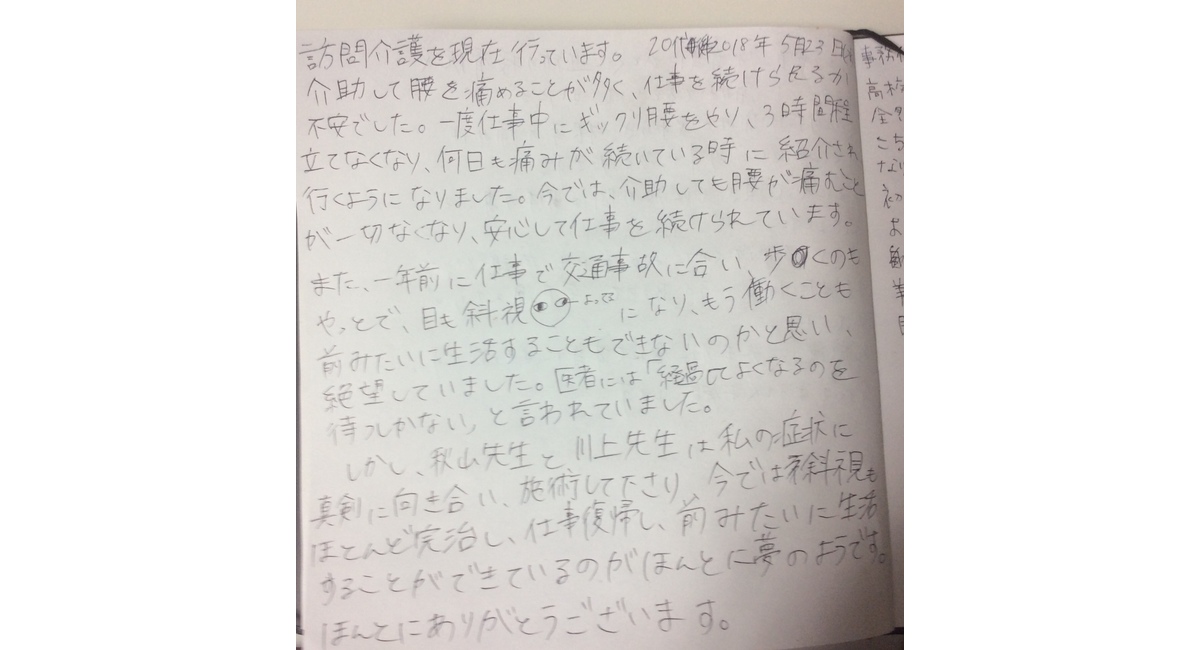 訪問介護を現在行っています。 20代 2018年 5月23日
介助して腰を痛めることが多く、仕事を続けられるか
不安でした。一度仕事中にギックリ腰をやり、3時間程
立てなくなり、何日も痛みが続いている時に紹介され
行くようになりました。今では、介助しても腰が痛むこと
が一切なくなり、安心して仕事を続けられています。
また、一年前に仕事で交通事故に合い、歩くのも
やっとで、目も斜視 よってる になり、もう働くことも
前みたいに生活することもできないのかと思い、
絶望していました。医者には「経過してよくなるのを
待つしかない」と言われていました。
しかし、秋山先生と川上先生は私の症状に
真剣に向き合い、施術して下さり、今では斜視も
ほとんど完治し、仕事復帰し、前みたいに生活
することができているのがほんとに夢のようです。
ほんとにありがとうございます。
事務
高校
こち
なり
初
よ